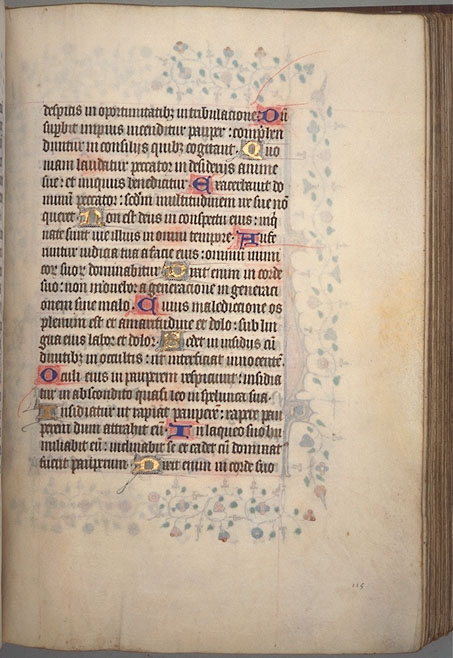 despicis in oportunitatibz in tribulacione: Dū
superbit impius incenditur pauper: comprehen
duntur in consilijs quibz cogitant. Quo
niam laudatur peccator in desiderijs anime
sue: et iniquus benedicitur. Exacerbauit do
minū peccator: scdm multitudinem ire sue nō
queret. Non est deus in conspectu eius: inq
nate sunt uie illius in omni tempore. Aufe
runtur iudicia tua a facie eius: omniū inimi
corū suorū dominabitur. Dixit enim in corde
suo: non mouebor a generacione in generaci
onem sine malo. Cuius maledictione os
plenum est et amaritudine et dolo: sub lin
gua eius labor et dolor. Sedet in insidijs cū
diuitibz in occultis: ut interficiat innocentē.
Oculi eius in pauperem respiciunt: insidia
tur in abscondito quasi leo in spelunca sua.
Insidiatur ut rapiat pauperē: rapere pau
perem dum attrahit eū. In laqueo suo hu
miliabit eū: inclinabit se et cadet cū dominat
fuerit pauperum. Dixit enim in corde suo
115